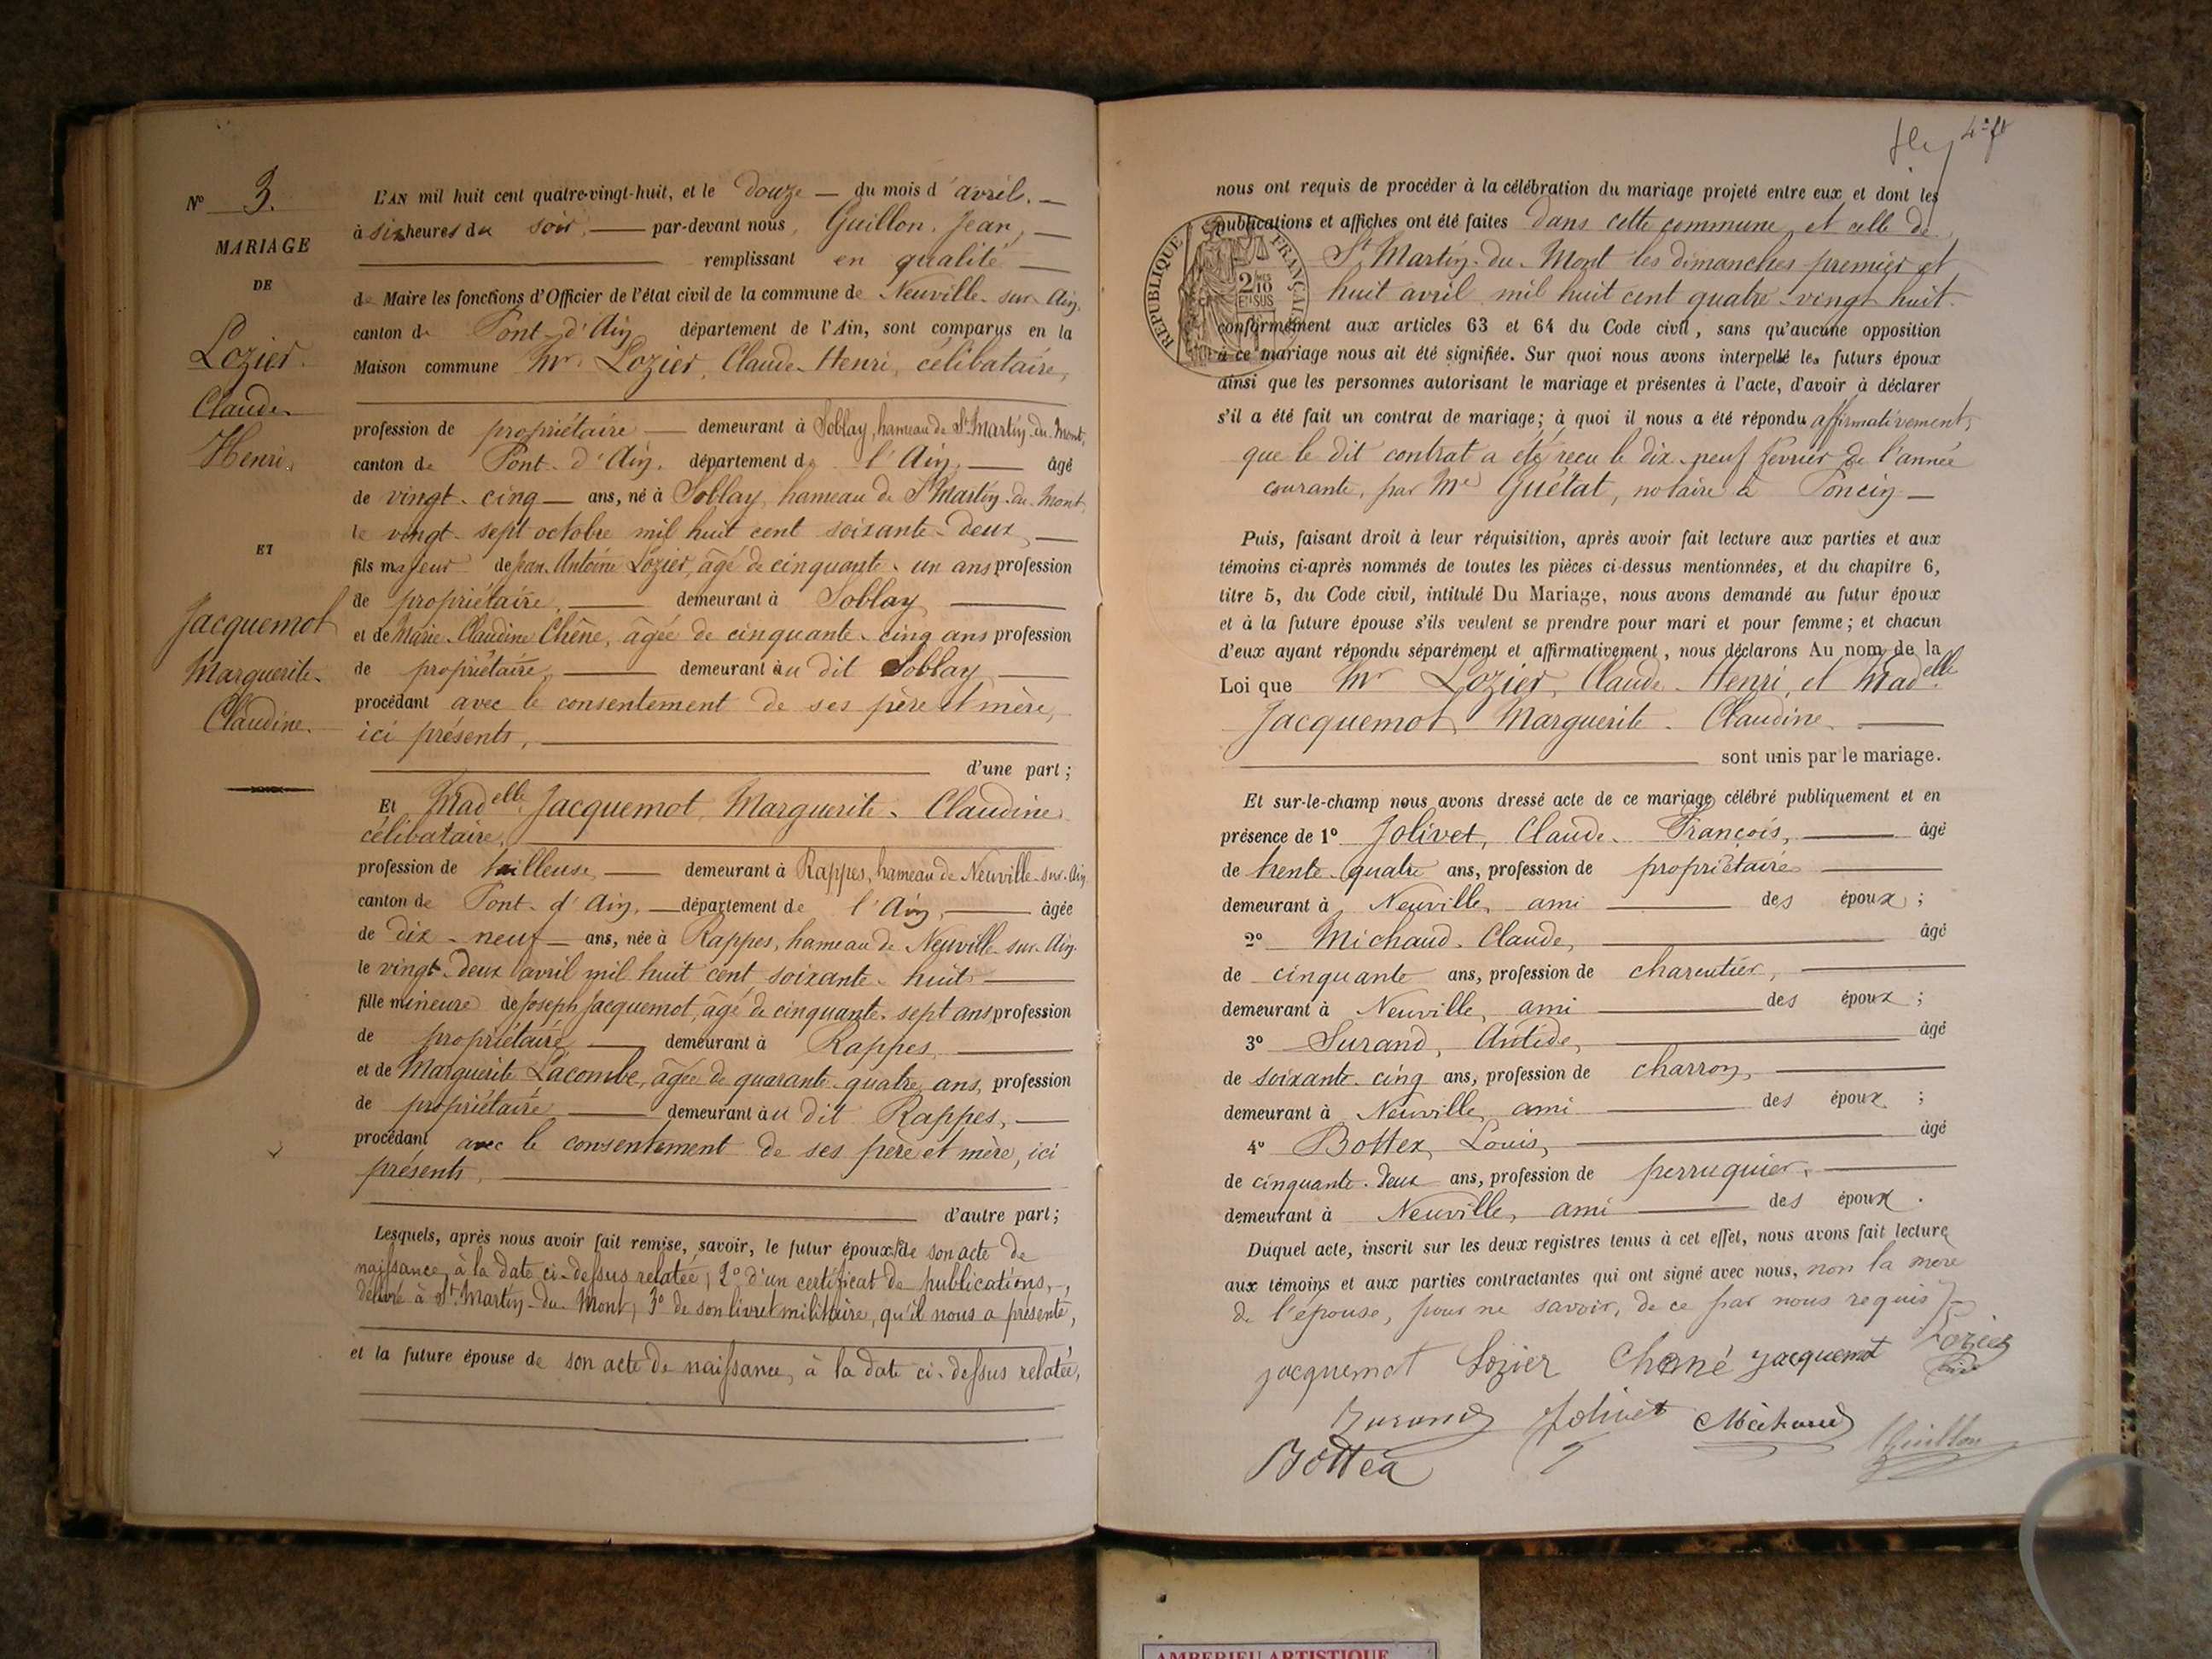 N° 3.
MARIAGE
DE
Lozier.
Claude
Henri.
ET
Jacquemot
Marguerite
Claudine.
L'AN mil huit cent quatre-vingt-huit, et le douze — du mois d'avril. —
à six heures du soir, — par-devant nous, Guillon, Jean, —
remplissant en qualité —
de Maire les fonctions d'Officier de l'état civil de la commune de Neuville-sur-Ain,
canton de Pont-d'Ain, département de l'Ain, sont comparus en la
Maison commune Mr. Lozier, Claude-Henri, célibataire,
profession de propriétaire — demeurant à Soblay, hameau de St Martin-du-Mont,
canton de Pont-d'Ain, département de l'Ain, — âgé
de vingt-cinq — ans, né à Soblay, hameau de St Martin-du-Mont,
le vingt-sept octobre mil huit cent soixante-deux, —
fils majeur de Jean-Antoine Lozier, âgé de cinquante-un ans profession
de propriétaire, — demeurant à Soblay —
et de Marie-Claudine Chêne, âgée de cinquante-cinq ans profession
de propriétaire, — demeurant au dit Soblay —
procédant avec le consentement de ses père et mère,
ici présents, —
d'une part ;
Et Madelle Jacquemot, Marguerite-Claudine
célibataire, —
profession de tailleuse, — demeurant à Rappes, hameau de Neuville-sur-Ain
canton de Pont-d'Ain, — département de l'Ain, — âgée
de dix-neuf — ans, née à Rappes, hameau de Neuville-sur-Ain.
le vingt-deux avril mil huit cent soixante-huit —
fille mineure de Joseph Jacquemot, âgé de cinquante-sept ans profession
de propriétaire, — demeurant à Rappes, —
et de Marguerite Lacombe, âgée de quarante-quatre ans, profession
de propriétaire — demeurant au dit Rappes, —
procédant avec le consentement de ses père et mère, ici
présents, —
d'autre part ;
Lesquels, après nous avoir fait remise, savoir, le futur époux 1° de son acte de
naissance, à la date ci-dessus relatée ; 2° d'un certificat de publications, -,
délivré à St Martin-du-Mont ; 3° de son livret militaire, qu'il nous a présenté,
et la future épouse de son acte de naissance, à la date ci-dessus relatée,
nous ont requis de procéder à la célébration du mariage projeté entre eux et dont les
publications et affiches ont été faites dans cette commune et celle de
St Martin-du-Mont les dimanches premier et
huit avril mil huit cent quatre-vingt huit.
RÉPUBLIQUE FRANÇAISE
2/10 EN SUS
conformément aux articles 63 et 64 du Code civil, sans qu'aucune opposition
à ce mariage nous ait été signifiée. Sur quoi nous avons interpellé les futurs époux
ainsi que les personnes autorisant le mariage et présentes à l'acte, d'avoir à déclarer
s'il a été fait un contrat de mariage ; à quoi il nous a été répondu affirmativement,
que le dit contrat a été reçu le dix-neuf février de l'année
courante, par Me Guétat, notaire à Poncin —
Puis, faisant droit à leur réquisition, après avoir fait lecture aux parties et aux
témoins ci-après nommés de toutes les pièces ci-dessus mentionnées, et du chapitre 6,
titre 5, du Code civil, intitulé Du Mariage, nous avons demandé au futur époux
et à la future épouse s'ils veulent se prendre pour mari et pour femme ; et chacun
d'eux ayant répondu séparément et affirmativement, nous déclarons Au nom de la
Loi que Mr Lozier, Claude-Henri, et Madelle
Jacquemot Marguerite-Claudine —
sont unis par le mariage.
Et sur-le-champ nous avons dressé acte de ce mariage célébré publiquement et en
présence de 1° Jolivet, Claude-François, — âgé
de trente-quatre ans, profession de propriétaire —
demeurant à Neuville, ami — des époux ;
2° Michaud, Claude, — âgé
de cinquante ans, profession de charcutier, —
demeurant à Neuville, ami — des époux ;
3° Durand, Antide, — âgé
de soixante-cinq ans, profession de charron, —
demeurant à Neuville, ami — des époux ;
4° Bottex, Louis, — âgé
de cinquante-deux ans, profession de perruquier, —
demeurant à Neuville, ami — des époux.
Duquel acte, inscrit sur les deux registres tenus à cet effet, nous avons fait lecture
aux témoins et aux parties contractantes qui ont signé avec nous, non la mère
de l'épouse, pour ne savoir, de ce par nous requis
Jacquemot Lozier Chêné Jacquemot Lozier
Durand Jolivet Michaud Guillon
Bottex
AMBERIEU ARTISTIQUE